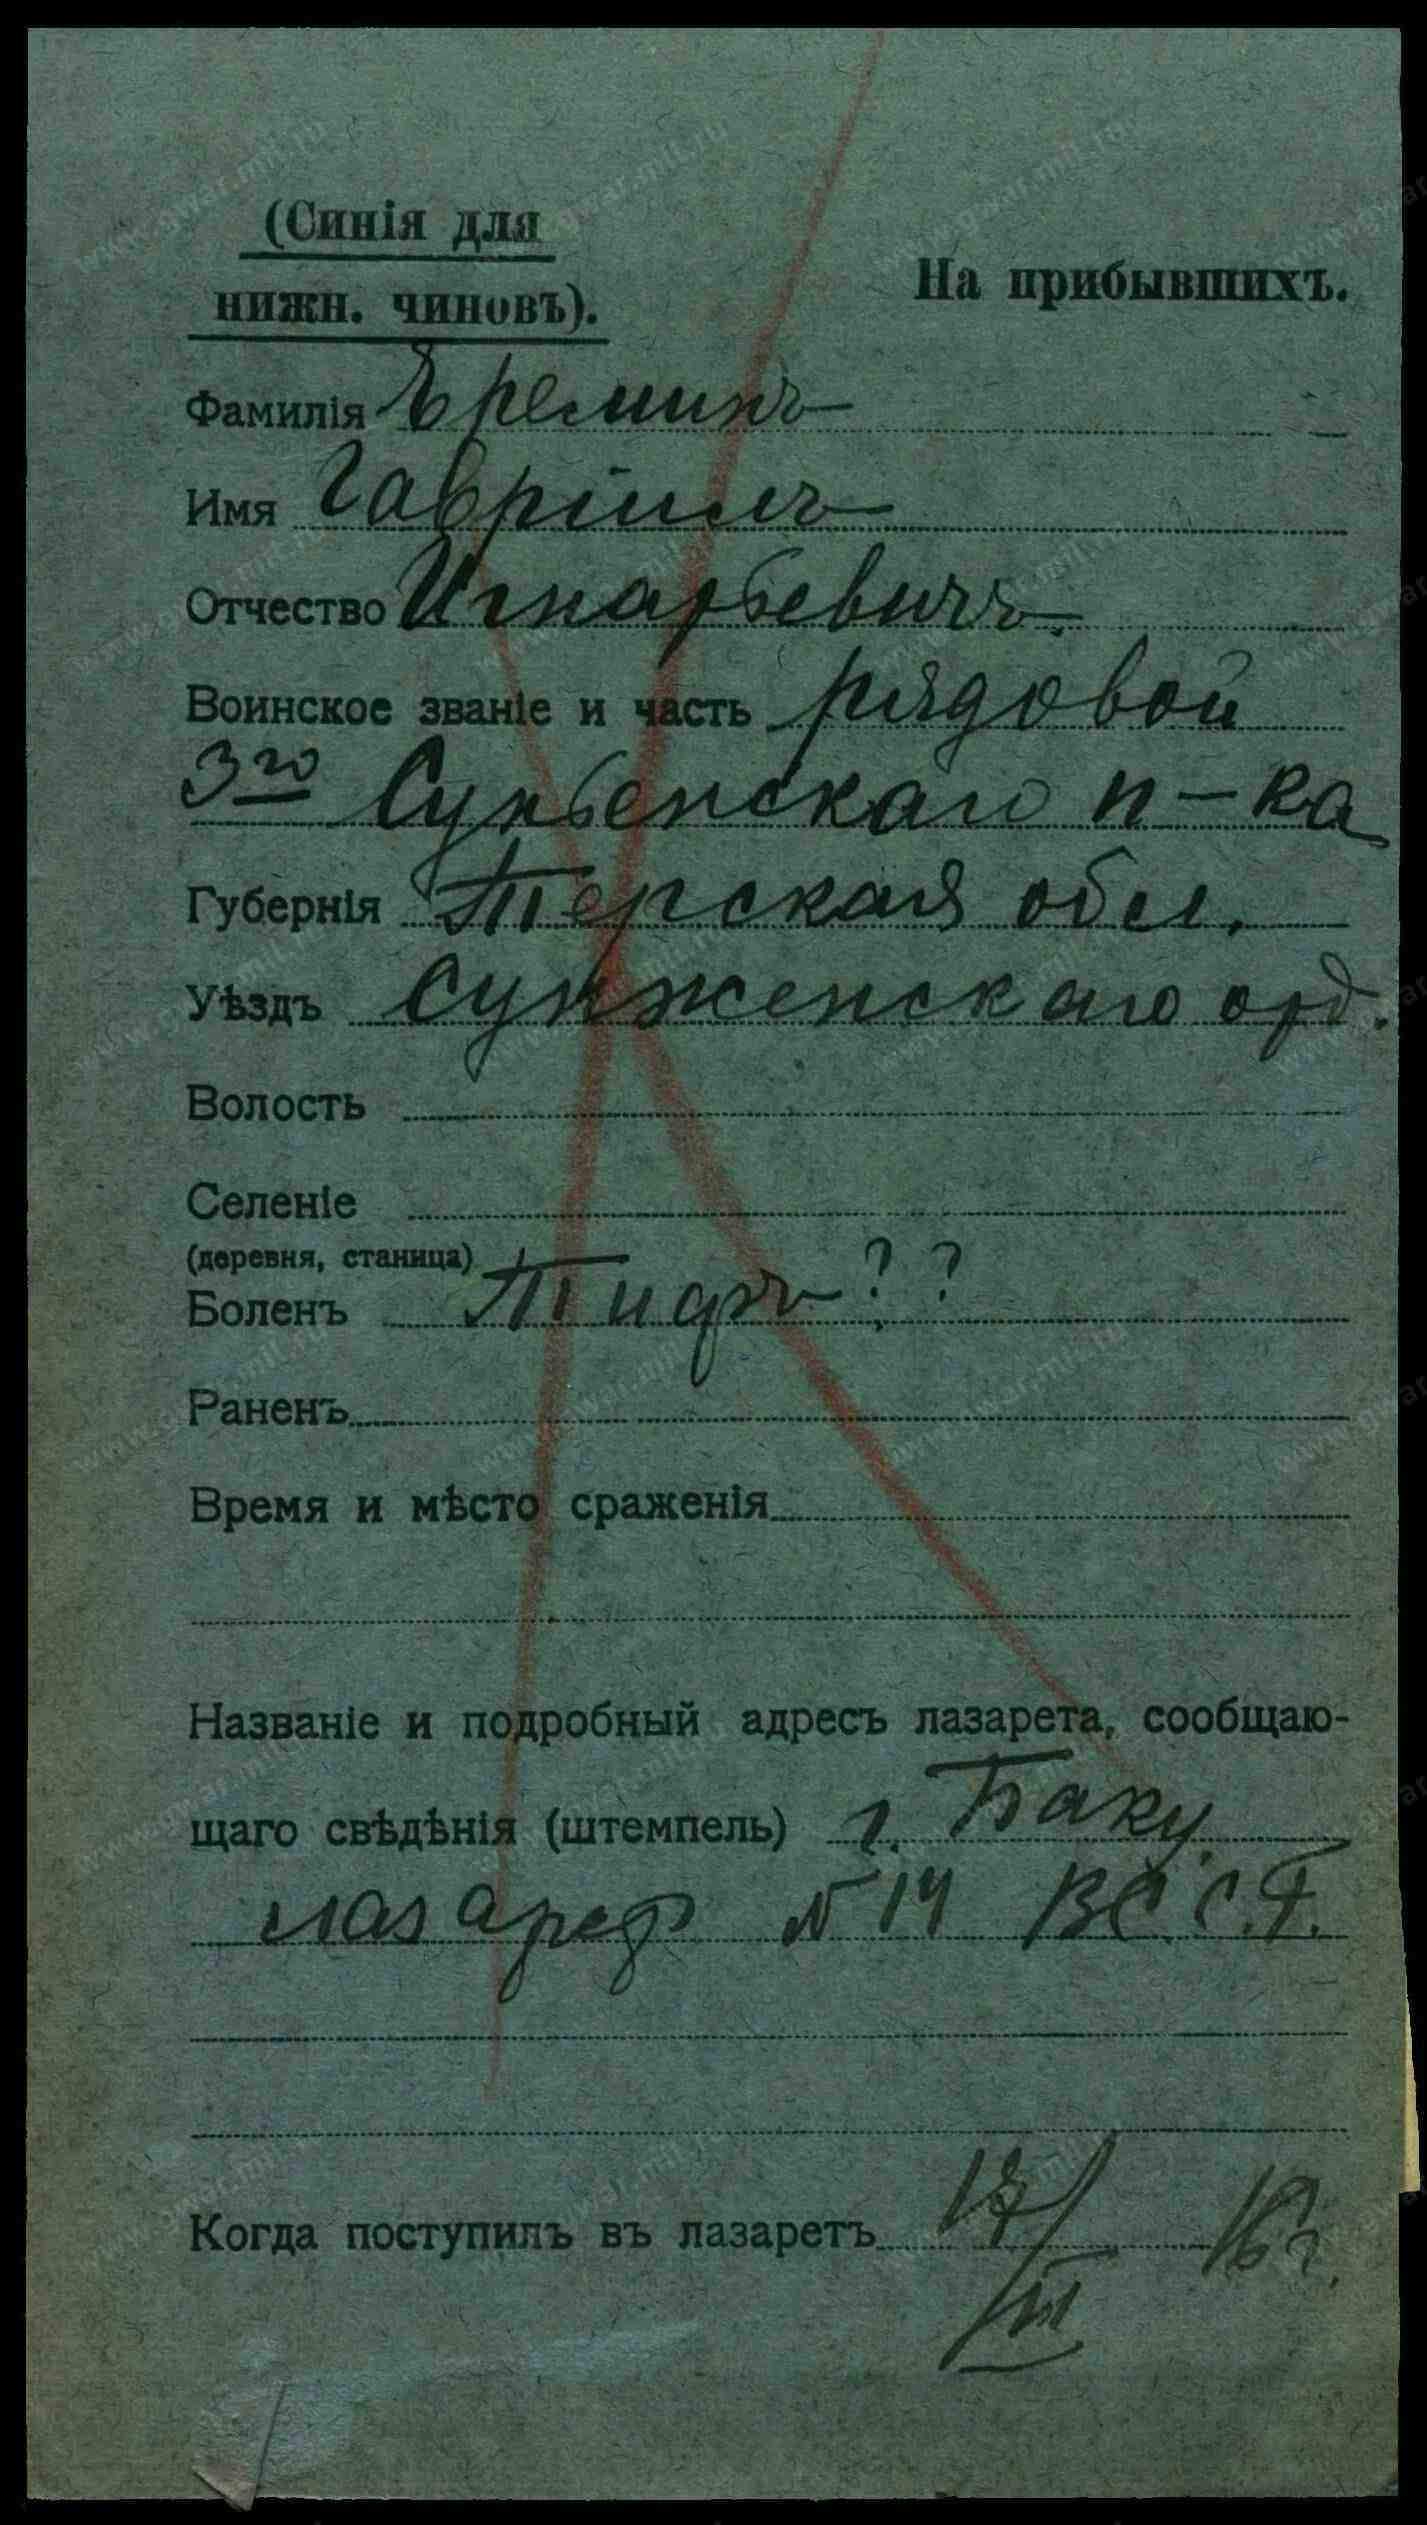 (Синія для
нижн. чиновъ).
На прибывшихъ.
Фамилія Ереминъ
Имя Гавріилъ
Отчество Игнатьевичъ.
Воинское званіе и часть рядовой
3го Сунженскаго п-ка
Губернія Терская обл.
Уѣздъ Сунженскаго отд.
Волость
Селеніе
(деревня, станица)
Боленъ Тифъ??
Раненъ
Время и мѣсто сраженія
Названіе и подробный адресъ лазарета, сообщаю-
щаго свѣдѣнія (штемпель) г. Баку
лазарет № 14 ВС С.Г.
Когда поступилъ въ лазаретъ 17/III 16 г.